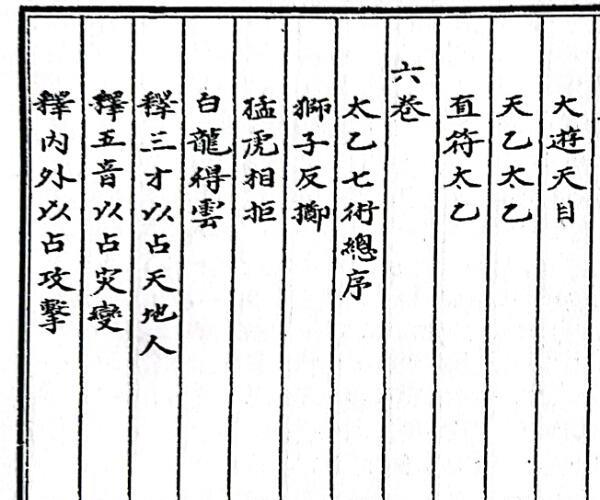 大遊天目
天乙太乙
直符太乙
六卷
太乙七術總序
獅子反擲
猛虎相拒
白龍得雲
釋三才以占天地人
釋五音以占灾變
釋內外以占攻擊